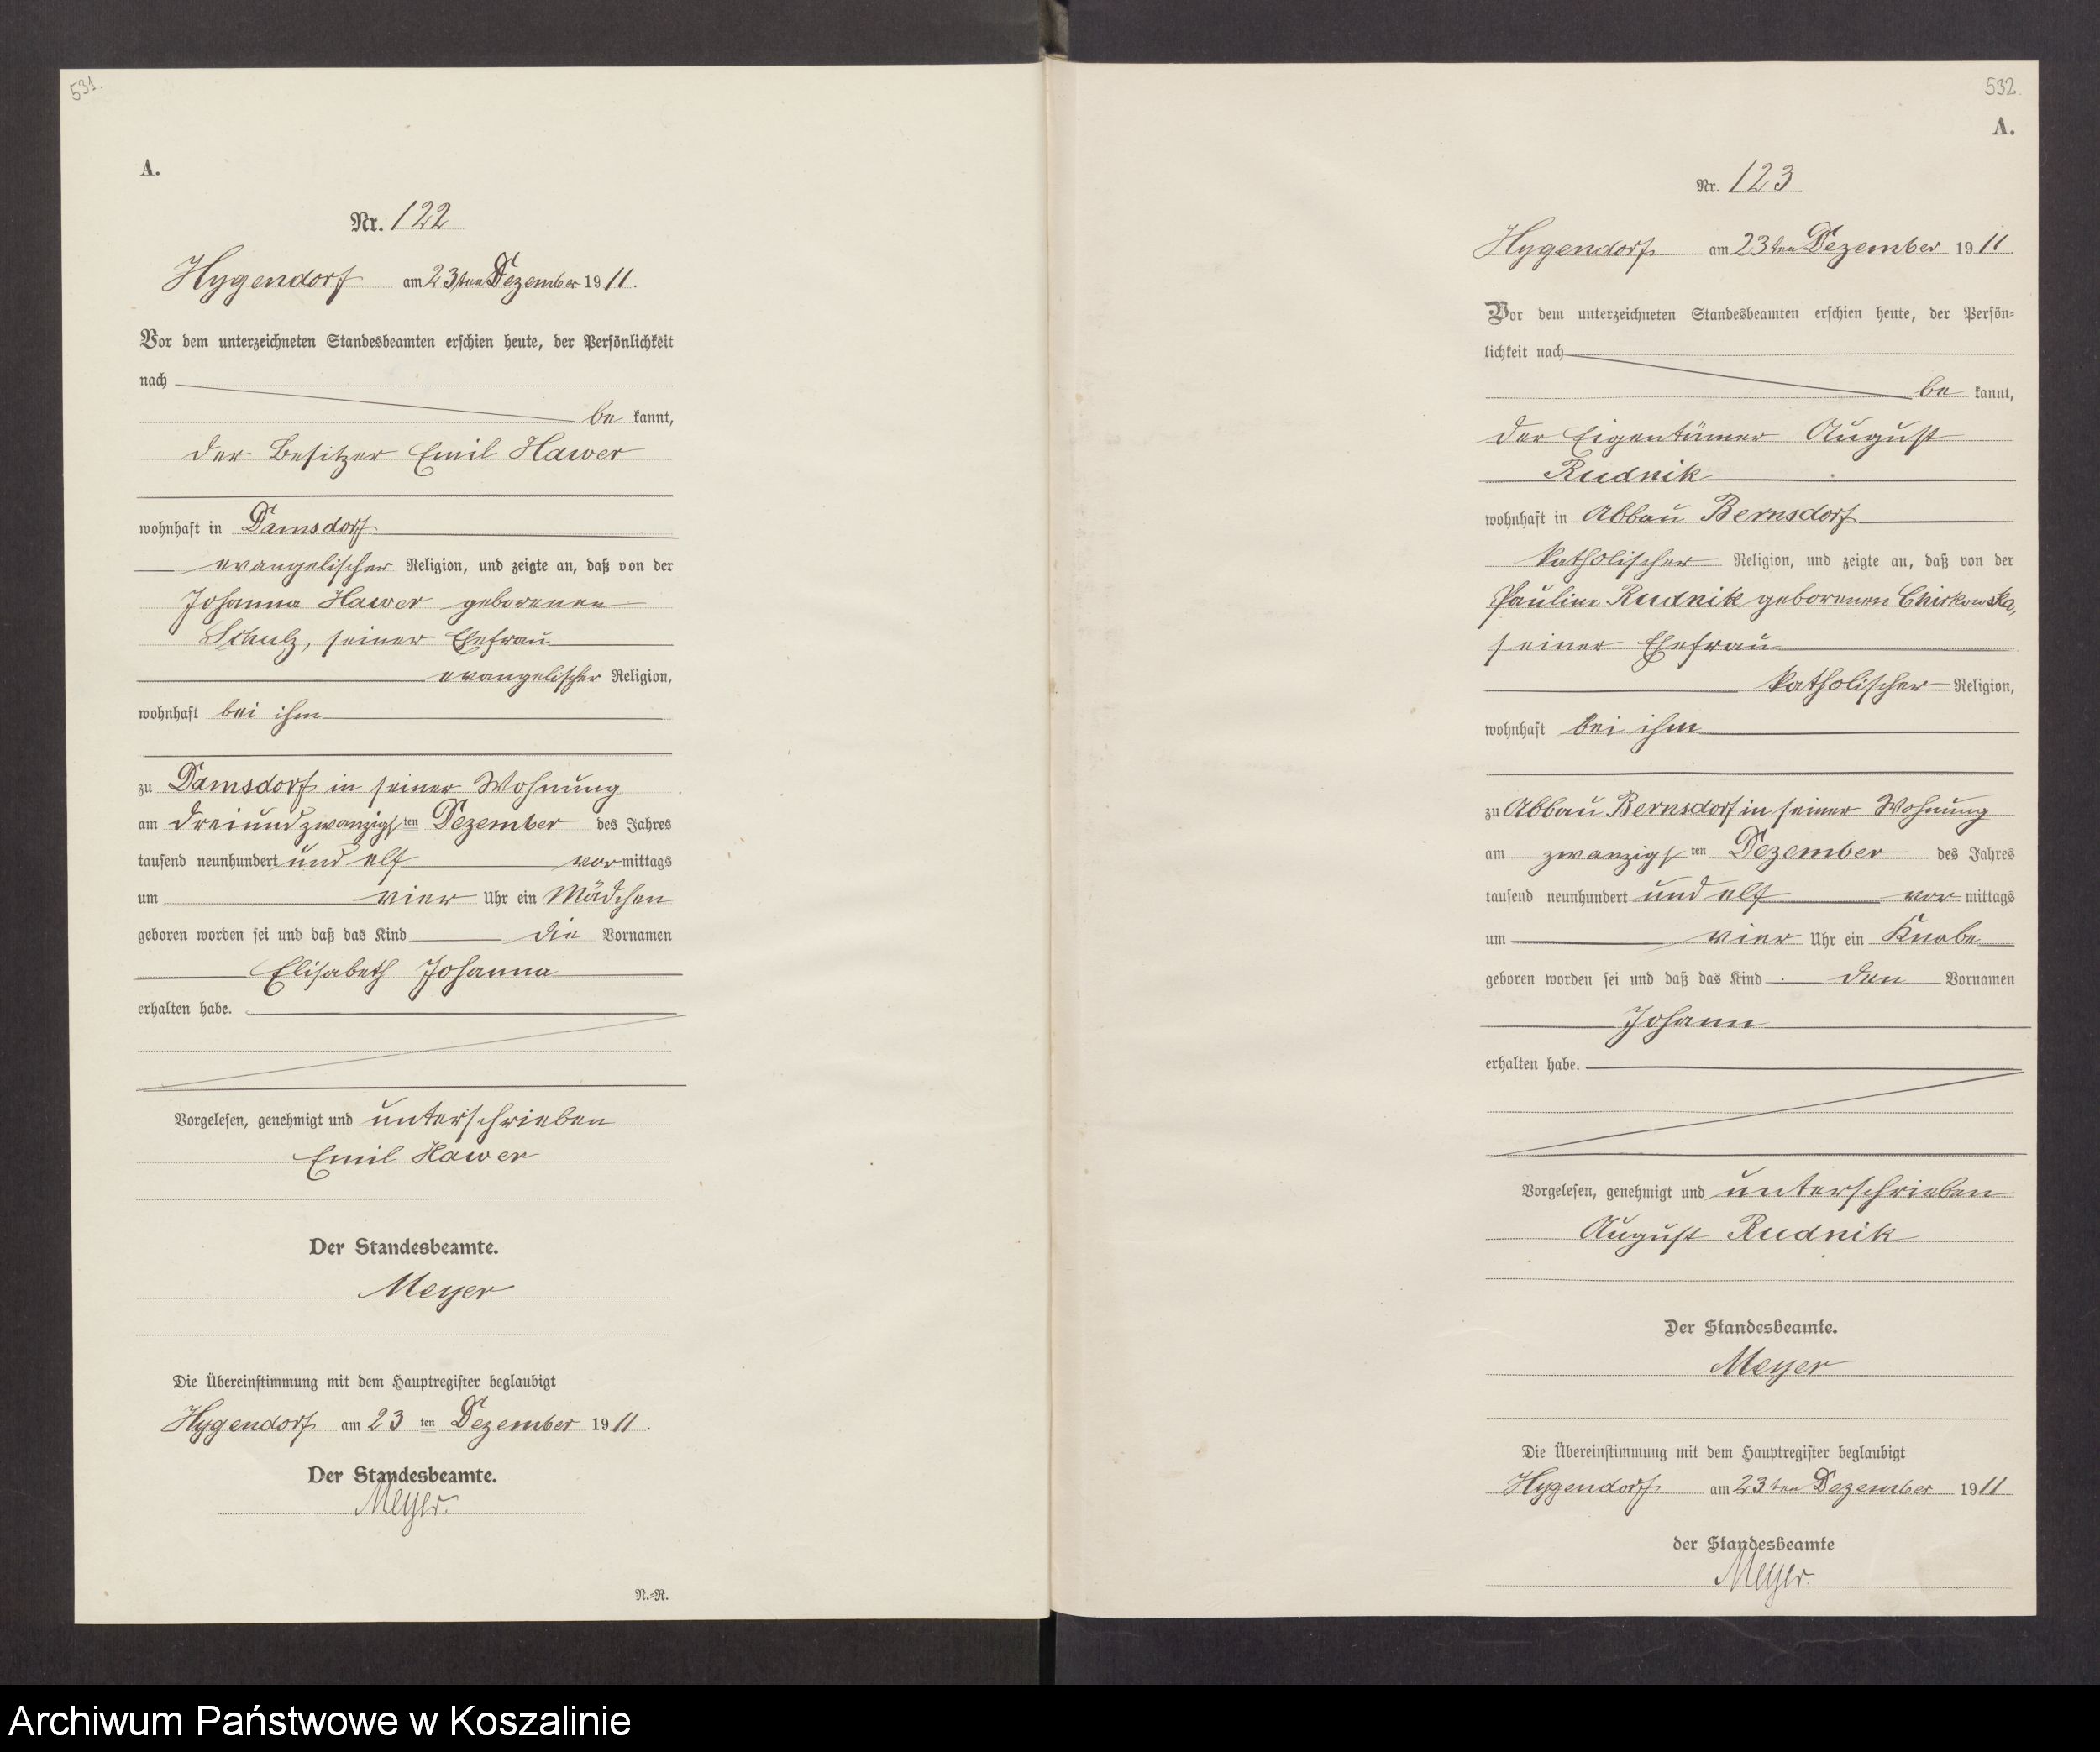 531.
A.
Nr. 122
Hygendorf am 23ten Dezember 1911.
Vor dem unterzeichneten Standesbeamten erschien heute, der Persönlichkeit
nach
be kannt,
der Besitzer Emil Hawer
wohnhaft in Damsdorf
evangelischer Religion, und zeigte an, daß von der
Johanna Hawer geborenen
Schulz, seiner Ehefrau
evangelischer Religion,
wohnhaft bei ihm
zu Damsdorf in seiner Wohnung
am dreiundzwanzigsten Dezember des Jahres
tausend neunhundert und elf vormittags
um vier Uhr ein Mädchen
geboren worden sei und daß das Kind die Vornamen
Elisabeth Johanna
erhalten habe.
Vorgelesen, genehmigt und unterschrieben
Emil Hawer
Der Standesbeamte.
Meyer
Die Übereinstimmung mit dem Hauptregister beglaubigt
Hygendorf am 23 ten Dezember 1911.
Der Standesbeamte.
Meyer.
N.=R.
532.
A.
Nr. 123
Hygendorf am 23ten Dezember 1911
Vor dem unterzeichneten Standesbeamten erschien heute, der Persön=
lichkeit nach
be kannt,
der Eigentümer August
Rudnik
wohnhaft in Abbau Bernsdorf
katholischer Religion, und zeigte an, daß von der
Pauline Rudnik geborenen
seiner Ehefrau
katholischer Religion,
wohnhaft bei ihm
zu Abbau Bernsdorf in seiner Wohnung
am zwanzigsten Dezember des Jahres
tausend neunhundert und elf vormittags
um vier Uhr ein Knabe
geboren worden sei und daß das Kind den Vornamen
Johann
erhalten habe.
Vorgelesen, genehmigt und unterschrieben
August Rudnik
Der Standesbeamte.
Meyer
Die Übereinstimmung mit dem Hauptregister beglaubigt
Hygendorf am 23ten Dezember 1911
der Standesbeamte
Meyer.
Archiwum Państwowe w Koszalinie